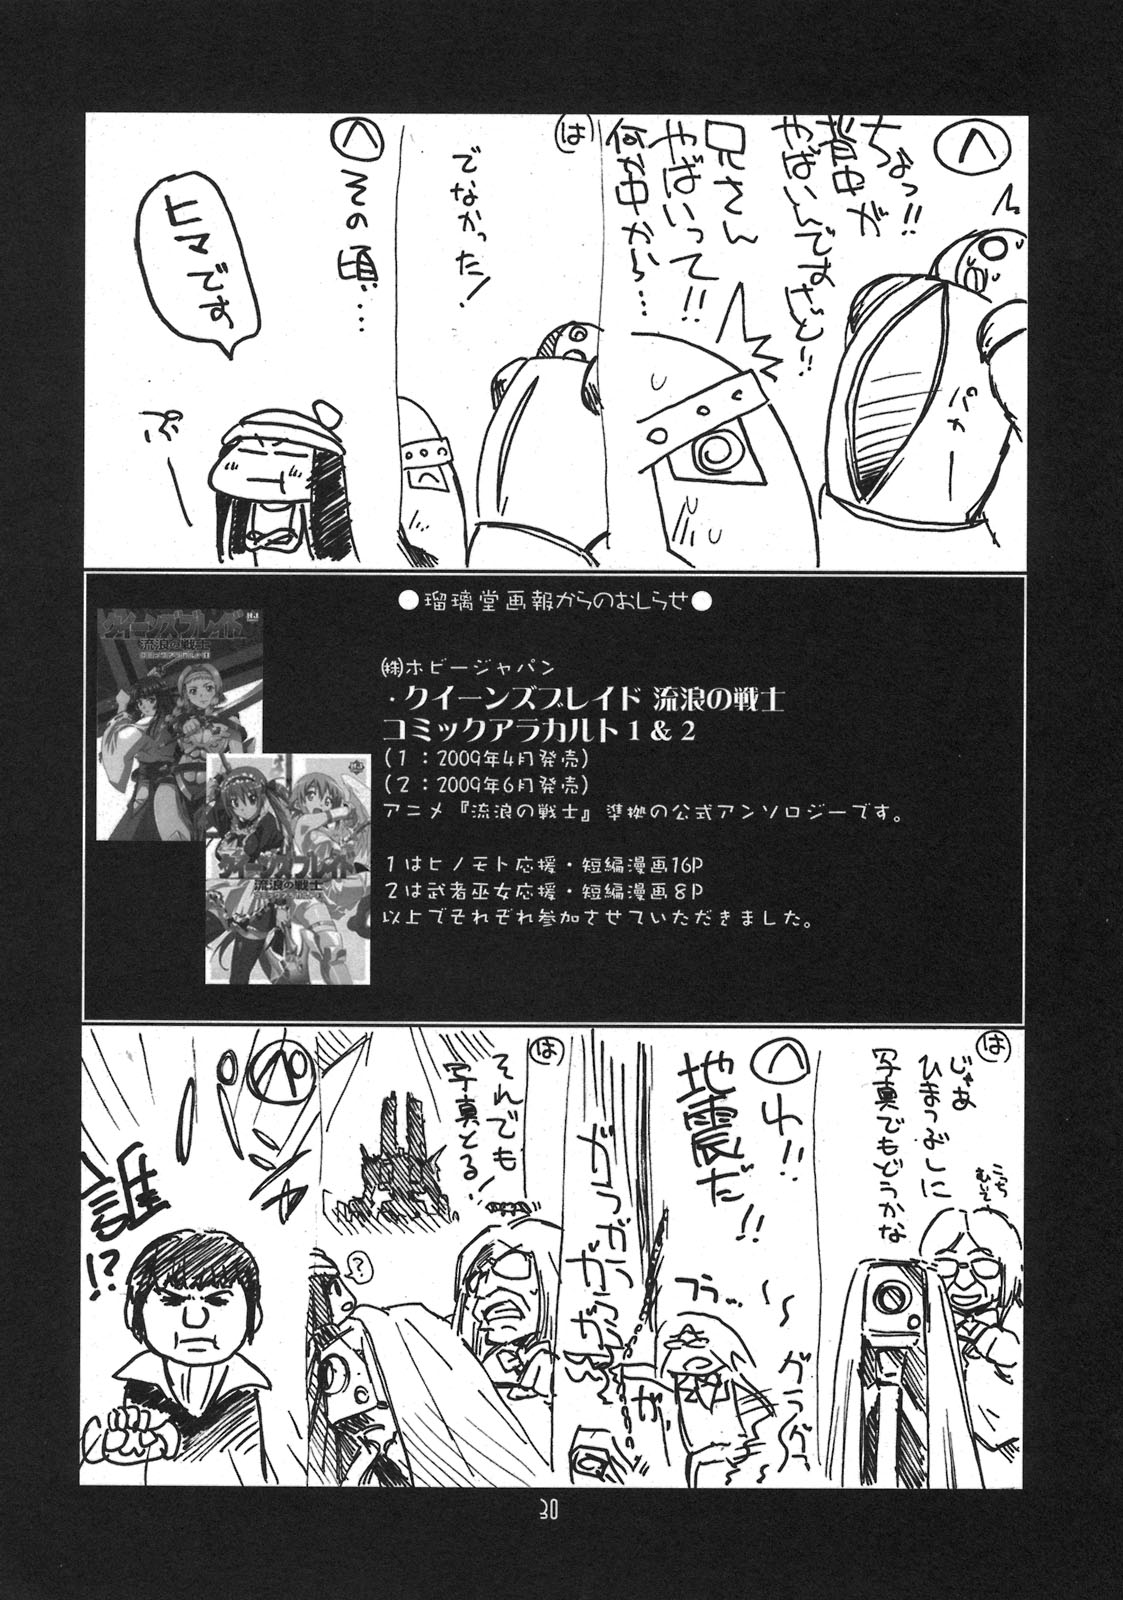 へ
ちょっ!!
背中が
やばいんですけど!!
パカー
兄さん
やばいって!!
何か中から…
は
でなかった!
へ
その頃…
ヒマです
ぷー
●瑠璃堂画報からのおしらせ●
㈱ホビージャパン
・クイーンズブレイド 流浪の戦士
コミックアラカルト1&2
(1:2009年4月発売)
(2:2009年6月発売)
アニメ『流浪の戦士』準拠の公式アンソロジーです。
1はヒノモト応援・短編漫画16P
2は武者巫女応援・短編漫画8P
以上でそれぞれ参加させていただきました。
クイーンズブレイド
流浪の戦士
クイーンズブレイド
流浪の戦士
は
じゃあ
ひまつぶしに
写真でもどうかな
こっち
むいて
へ
わ!!
地震だ!!
グラグラッ
は
それでも
写真とる!
?
ペ
誰
!?
30